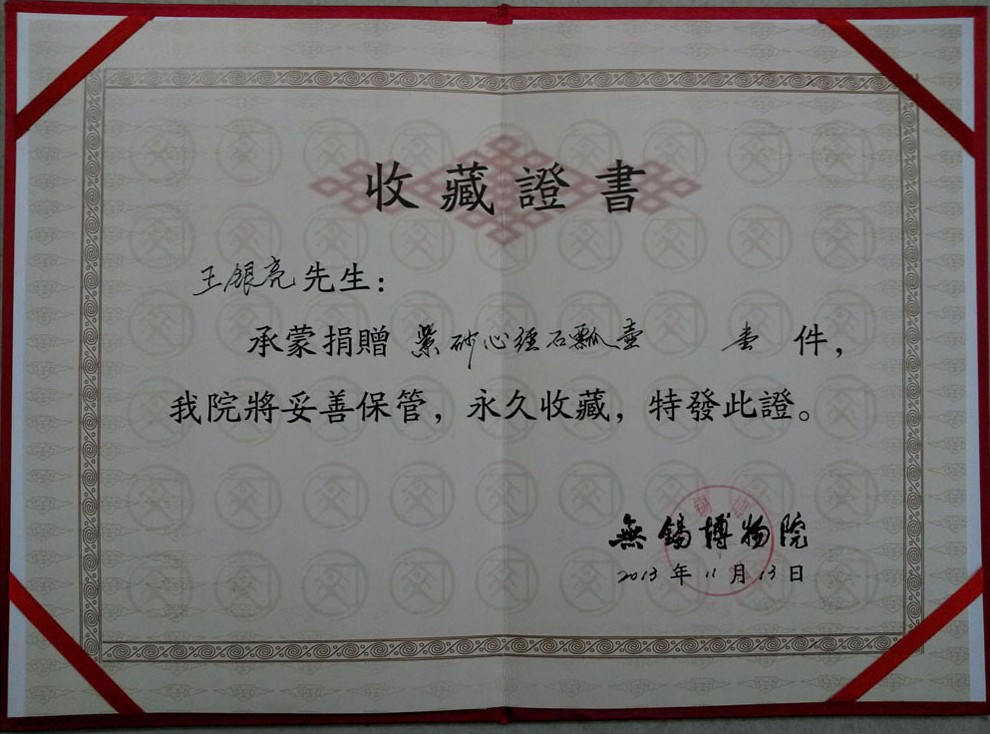 收藏證書
王銀亮先生：
承蒙捐贈 紫砂心經石瓢壺 壹 件，
我院將妥善保管，永久收藏，特發此證。
無錫博物院
2013 年 11 月 13 日